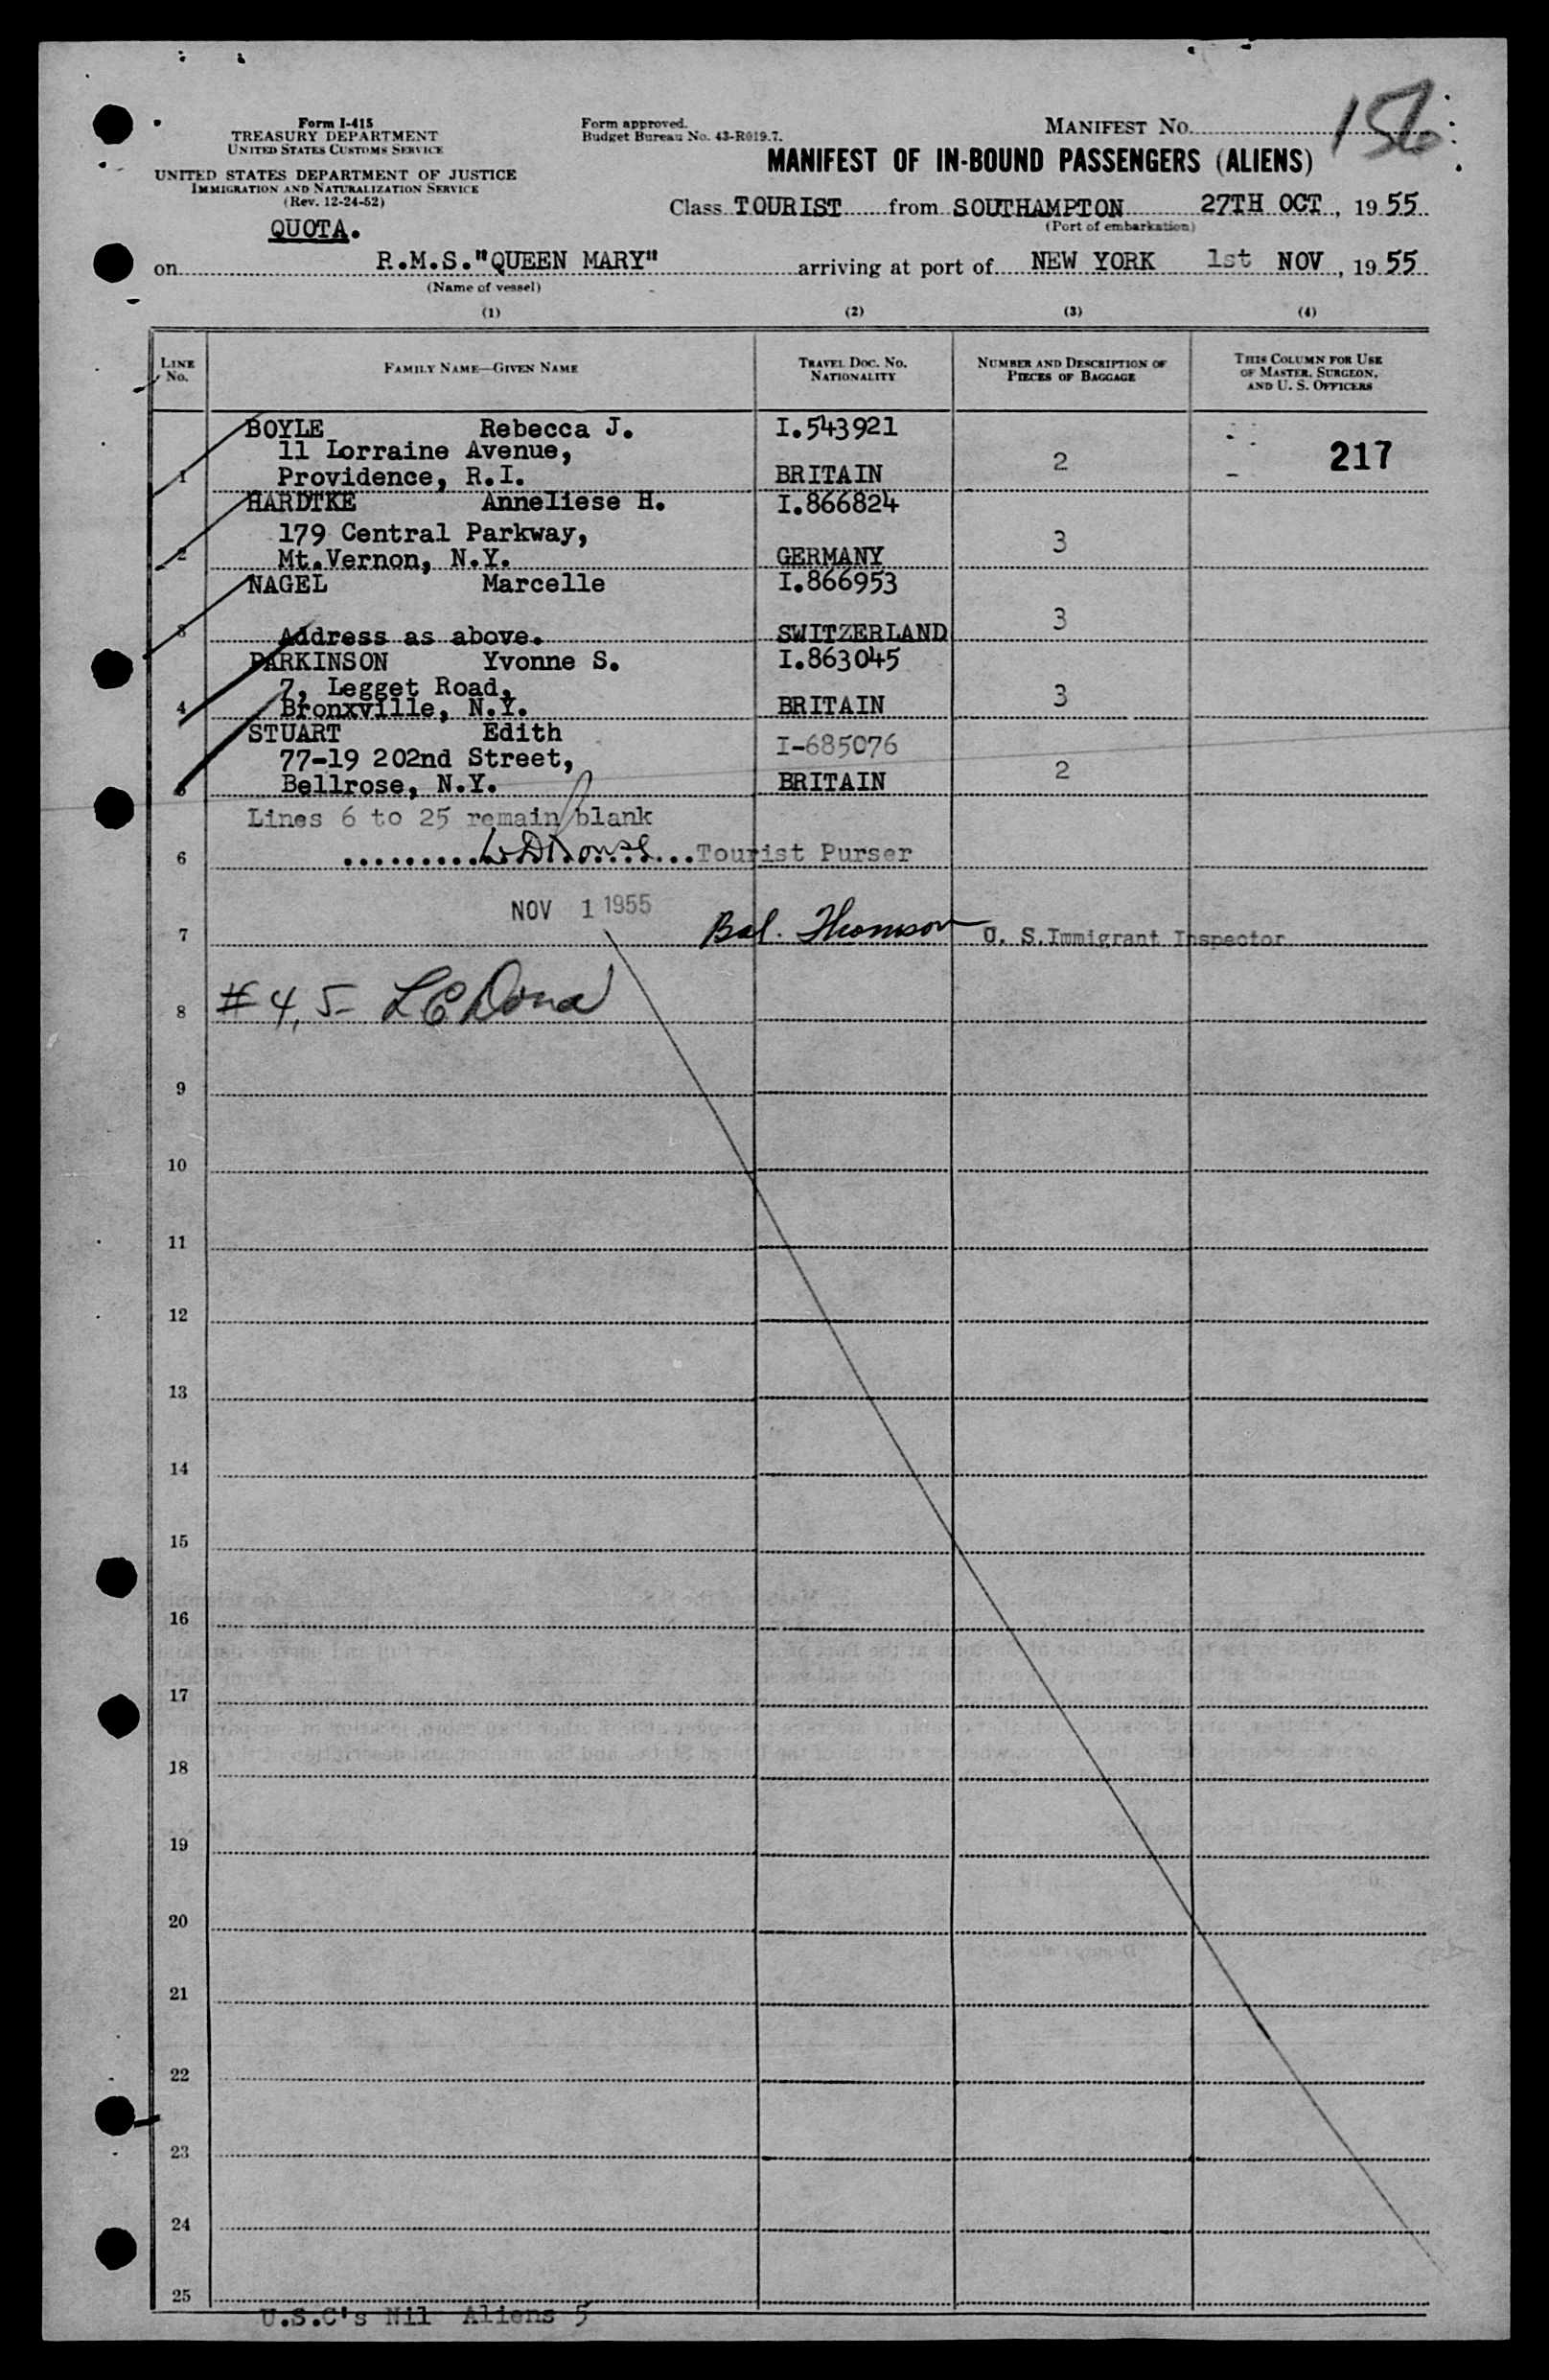 Form I-415
TREASURY DEPARTMENT
UNITED STATES CUSTOMS SERVICE
UNITED STATES DEPARTMENT OF JUSTICE
IMMIGRATION AND NATURALIZATION SERVICE
(Rev. 12-24-52)
QUOTA.
Form approved.
Budget Bureau No. 43-R019.7.
MANIFEST NO. 156
MANIFEST OF IN-BOUND PASSENGERS (ALIENS)
Class TOURIST from SOUTHAMPTON 27TH OCT, 1955
(Port of embarkation)
on R.M.S."QUEEN MARY" arriving at port of NEW YORK 1st NOV, 1955
(Name of vessel)
(1) (2) (3) (4)
LINE No. FAMILY NAME—GIVEN NAME TRAVEL DOC. NO. NATIONALITY NUMBER AND DESCRIPTION OF PIECES OF BAGGAGE THIS COLUMN FOR USE OF MASTER, SURGEON, AND U. S. OFFICERS
BOYLE Rebecca J. I.543921
11 Lorraine Avenue, 2 217
1 Providence, R.I. BRITAIN
HARDTKE Anneliese H. I.866824
179 Central Parkway, 3
2 Mt.Vernon, N.Y. GERMANY
NAGEL Marcelle I.866953
3 Address as above. SWITZERLAND 3
PARKINSON Yvonne S. I.863045
7, Legget Road, 3
4 Bronxville, N.Y. BRITAIN
STUART Edith I-685076
77-19 202nd Street, 2
5 Bellrose, N.Y. BRITAIN
Lines 6 to 25 remain blank
6 Tourist Purser
NOV 1 1955
7 Thomson U. S.Immigrant Inspector
8 #4,5-
9
10
11
12
13
14
15
16
17
18
19
20
21
22
23
24
25
U.S.C's Nil Aliens 5